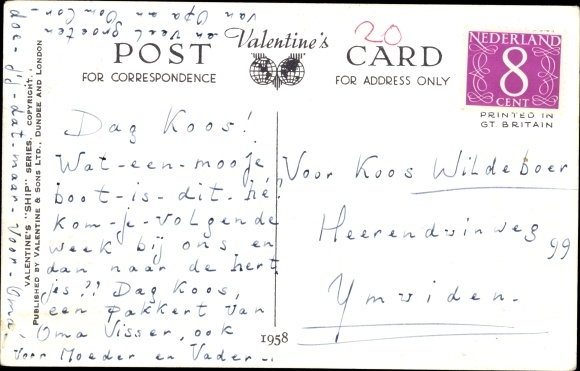 POST Valentine's CARD
FOR CORRESPONDENCE FOR ADDRESS ONLY
20
NEDERLAND
8
CENT
PRINTED IN
GT. BRITAIN
VALENTINE'S "SHIP" SERIES. COPYRIGHT.
PUBLISHED BY VALENTINE & SONS LTD., DUNDEE AND LONDON
Dag Koos!
Wat-een-mooje
boot-is-dit-hé
kom-je-volgende
week bij ons en
dan naar de hert
jes?? Dag Koos,
een pakkert van
Oma Visser, ook
voor Moeder en Vader-
doe-jij-dat-maar-Voor-Oma
en veel groeten
van Opa en Oom Cor-
1958
Voor Koos Wildeboer
Heerenduinweg 99
Ymuiden.